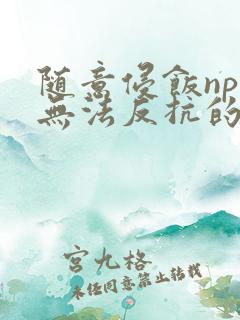 随意侵飯np
無法反抗的
宮九格
未经同意禁止转载